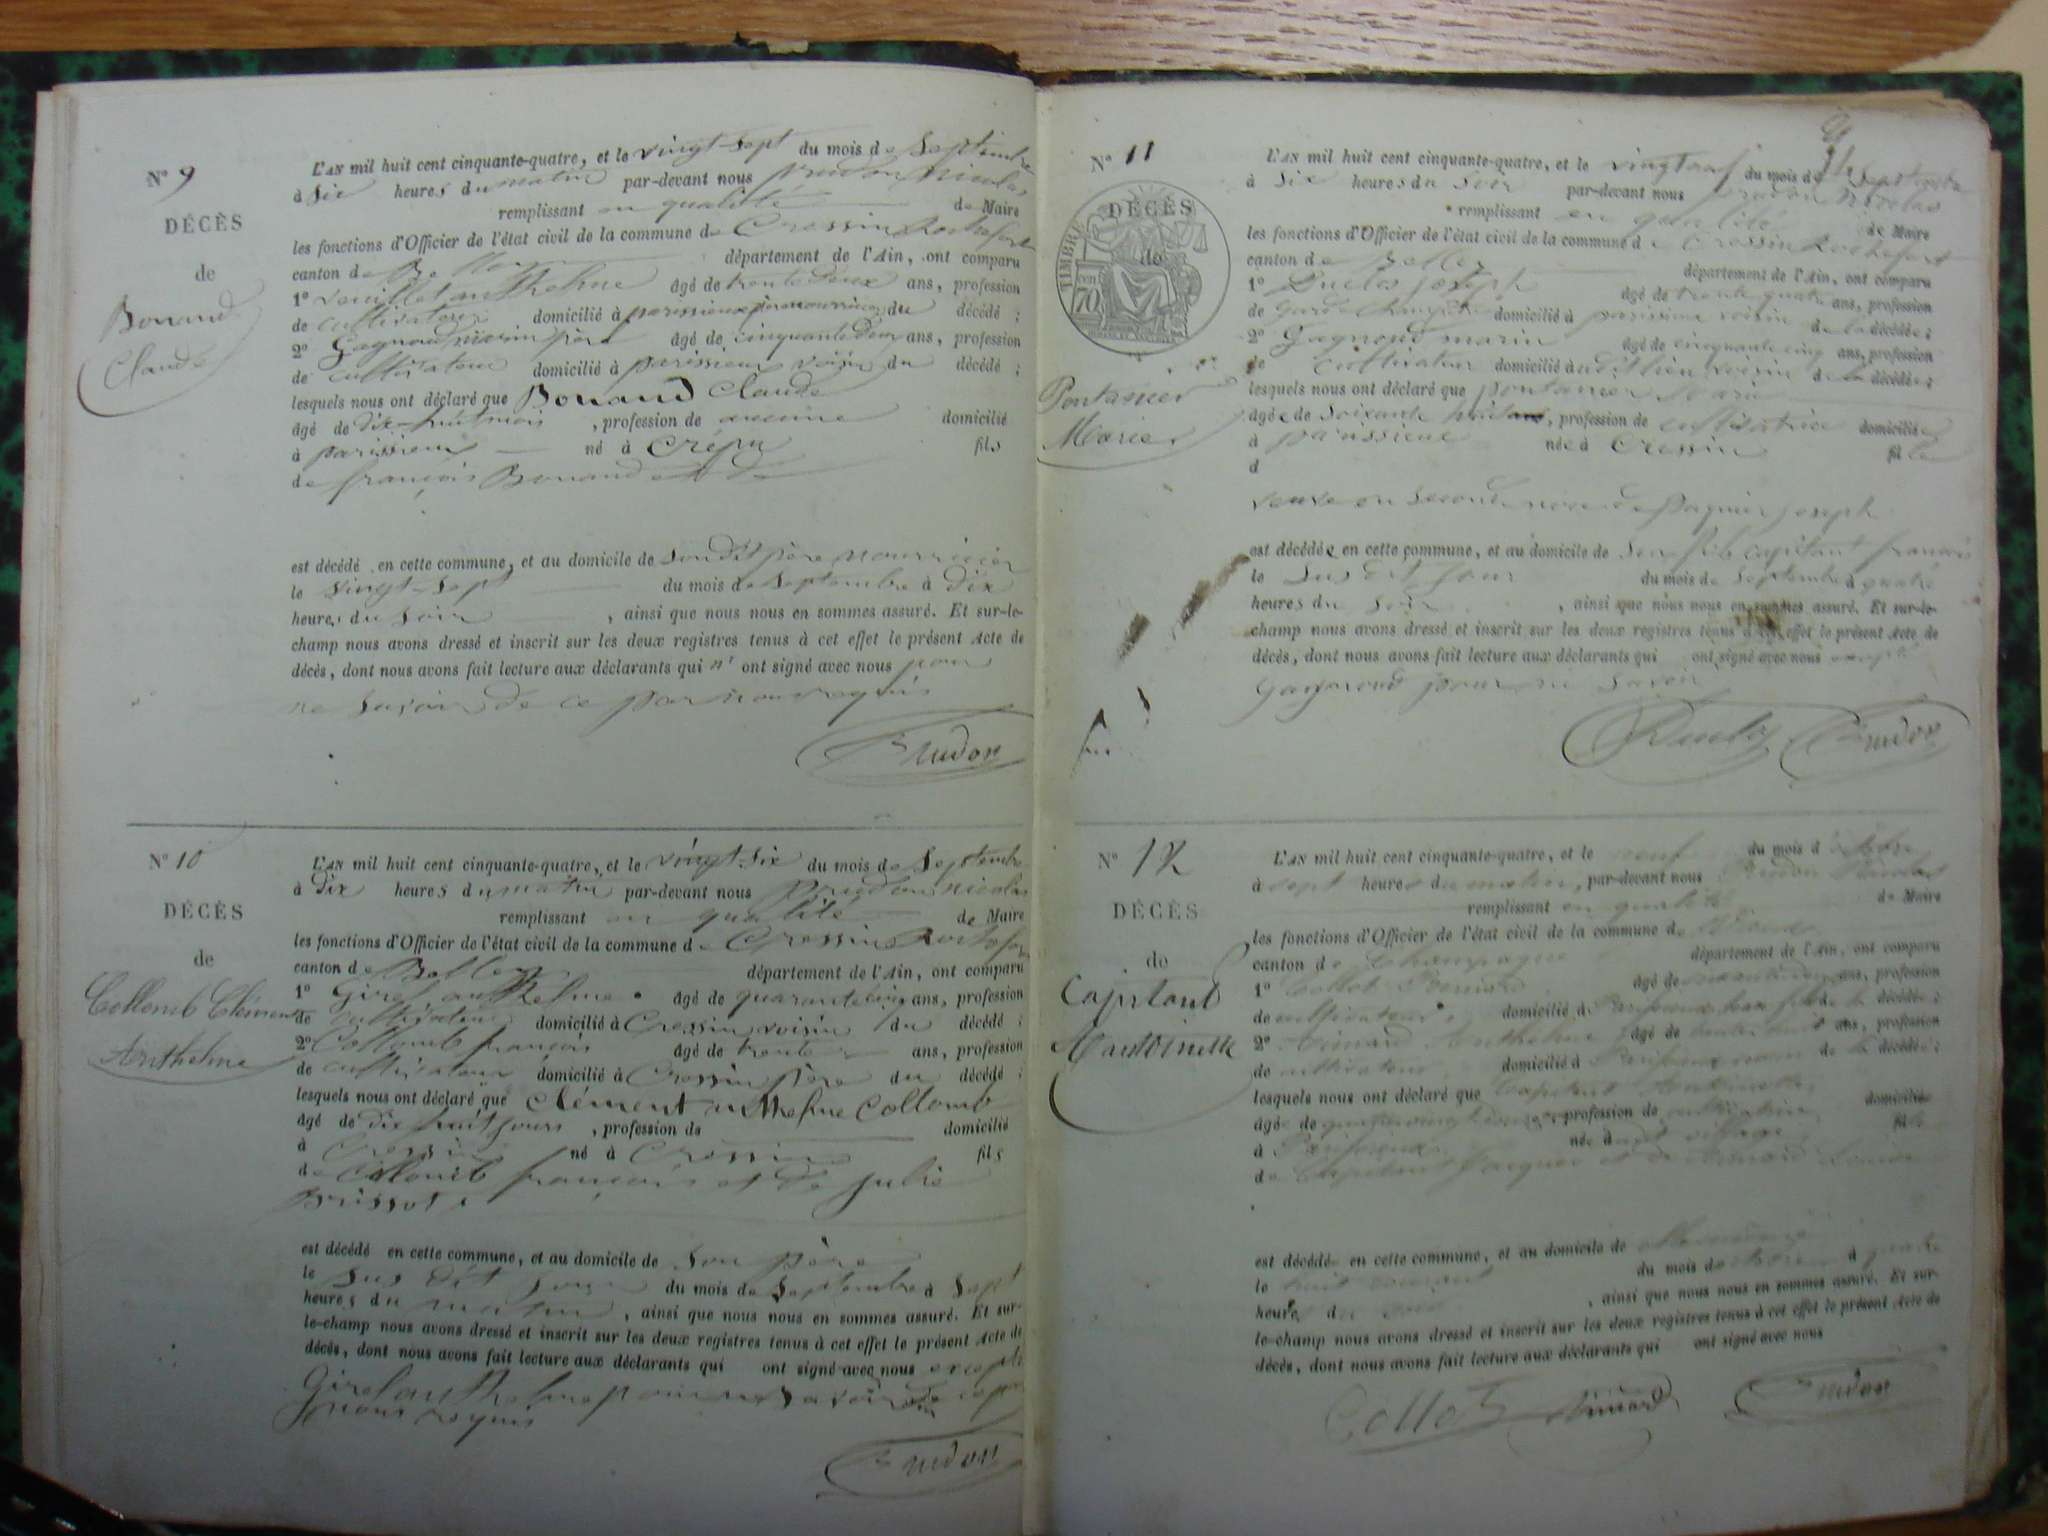 N° 9
DÉCÈS
de
Bonand
Claude
L'AN mil huit cent cinquante-quatre, et le vingt-sept du mois de Septembre
à Six heures du matin par-devant nous prudon nicolas
remplissant en qualité de Maire
les fonctions d'Officier de l'état civil de la commune de Cressin Rochefort
canton de Belley département de l'Ain, ont comparu
1° vuillet anthelme âgé de trente deux ans, profession
de cultivateur domicilié à parissieux père nourricier du décédé ;
2° Gagnoud marin père âgé de cinquante deux ans, profession
de cultivateur domicilié à parissieux voisin du décédé ;
lesquels nous ont déclaré que Bonand Claude
âgé de dix-huit mois , profession de aucune domicilié
à parissieux né à fils
de françois Bonand et de
est décédé en cette commune, et au domicile de Son dit père nourricier
le vingt-sept du mois de Septembre à dix
heures du Soir , ainsi que nous nous en sommes assuré. Et sur-le-
champ nous avons dressé et inscrit sur les deux registres tenus à cet effet le présent Acte de
décès, dont nous avons fait lecture aux déclarants qui n' ont signé avec nous pour
ne Savoir de ce par nous requis
Prudon
N° 10
DÉCÈS
de
Collomb Clément
Anthelme
L'AN mil huit cent cinquante-quatre, et le vingt-Six du mois de Septembre
à dix heures du matin par-devant nous prudon nicolas
remplissant en qualité de Maire
les fonctions d'Officier de l'état civil de la commune de Cressin Rochefort
canton de Belley département de l'Ain, ont comparu
1° Girel anthelme âgé de quarante cinq ans, profession
de cultivateur domicilié à Cressin voisin du décédé ;
2° Collomb françois âgé de trente ans, profession
de cultivateur domicilié à Cressin père du décédé ;
lesquels nous ont déclaré que Clément anthelme Collomb
âgé de dix huit jours , profession de domicilié
à Cressin né à Cressin fils
de Colomb françois et de Julie
Brissot
est décédé en cette commune, et au domicile de Son père
le Sus dit jour du mois de Septembre à Sept
heures du matin , ainsi que nous nous en sommes assuré. Et sur-
le-champ nous avons dressé et inscrit sur les deux registres tenus à cet effet le présent Acte de
décès, dont nous avons fait lecture aux déclarants qui ont signé avec nous excepté
Girel anthelme pour ne Savoir de ce par
nous requis
Prudon
N° 11
DÉCÈS
de
TIMBRE
70
Pontanier
Marie
L'AN mil huit cent cinquante-quatre, et le vingt neuf du mois de Septembre
à Six heures du Soir par-devant nous prudon Nicolas
remplissant en qualité de Maire
les fonctions d'Officier de l'état civil de la commune de Cressin Rochefort
canton de Belley département de l'Ain, ont comparu
1° Duclos joseph âgé de trente quatre ans, profession
de garde champêtre domicilié à parissieux voisin de la décédée ;
2° Gagnoud marin âgé de cinquante cinq ans, profession
de cultivateur domicilié à dit lieu voisin de la décédée ;
lesquels nous ont déclaré que pontanier Marie
âgée de Soixante huit ans, profession de cultivatrice domicilié
à parissieux née à Cressin fille
d
veuve en Seconde noce de paquier joseph
est décédée en cette commune, et au domicile de Son fils capitant françois
le Sus dit jour du mois de Septembre à quatre
heures du Soir , ainsi que nous nous en sommes assuré. Et sur-le-
champ nous avons dressé et inscrit sur les deux registres tenus à cet effet le présent Acte de
décès, dont nous avons fait lecture aux déclarants qui ont signé avec nous excepté
Gagnoud pour ne Savoir
Duclos Prudon
N° 12
DÉCÈS
de
Capitant
antoinette
L'AN mil huit cent cinquante-quatre, et le neuf du mois d'octobre
à sept heures du matin, par-devant nous Prudon Nicolas
remplissant en qualité de Maire
les fonctions d'Officier de l'état civil de la commune de
canton de Champagne département de l'Ain, ont comparu
1° Collet âgé de ans, profession
de cultivateur domicilié à Parissieux de la décédée ;
2° Anthelme âgé de trente huit ans, profession
de cultivateur domicilié à Parissieux voisin de la décédée ;
lesquels nous ont déclaré que Capitant Antoinette
âgée de profession de cultivatrice domicilié
à Parissieux née à dit village fille
de Capitant Jacques et de Louise
est décédée en cette commune, et au domicile de
le huit courant du mois d'octobre à quatre
heures du soir , ainsi que nous nous en sommes assuré. Et sur-
le-champ nous avons dressé et inscrit sur les deux registres tenus à cet effet le présent Acte de
décès, dont nous avons fait lecture aux déclarants qui ont signé avec nous
Collet Prudon